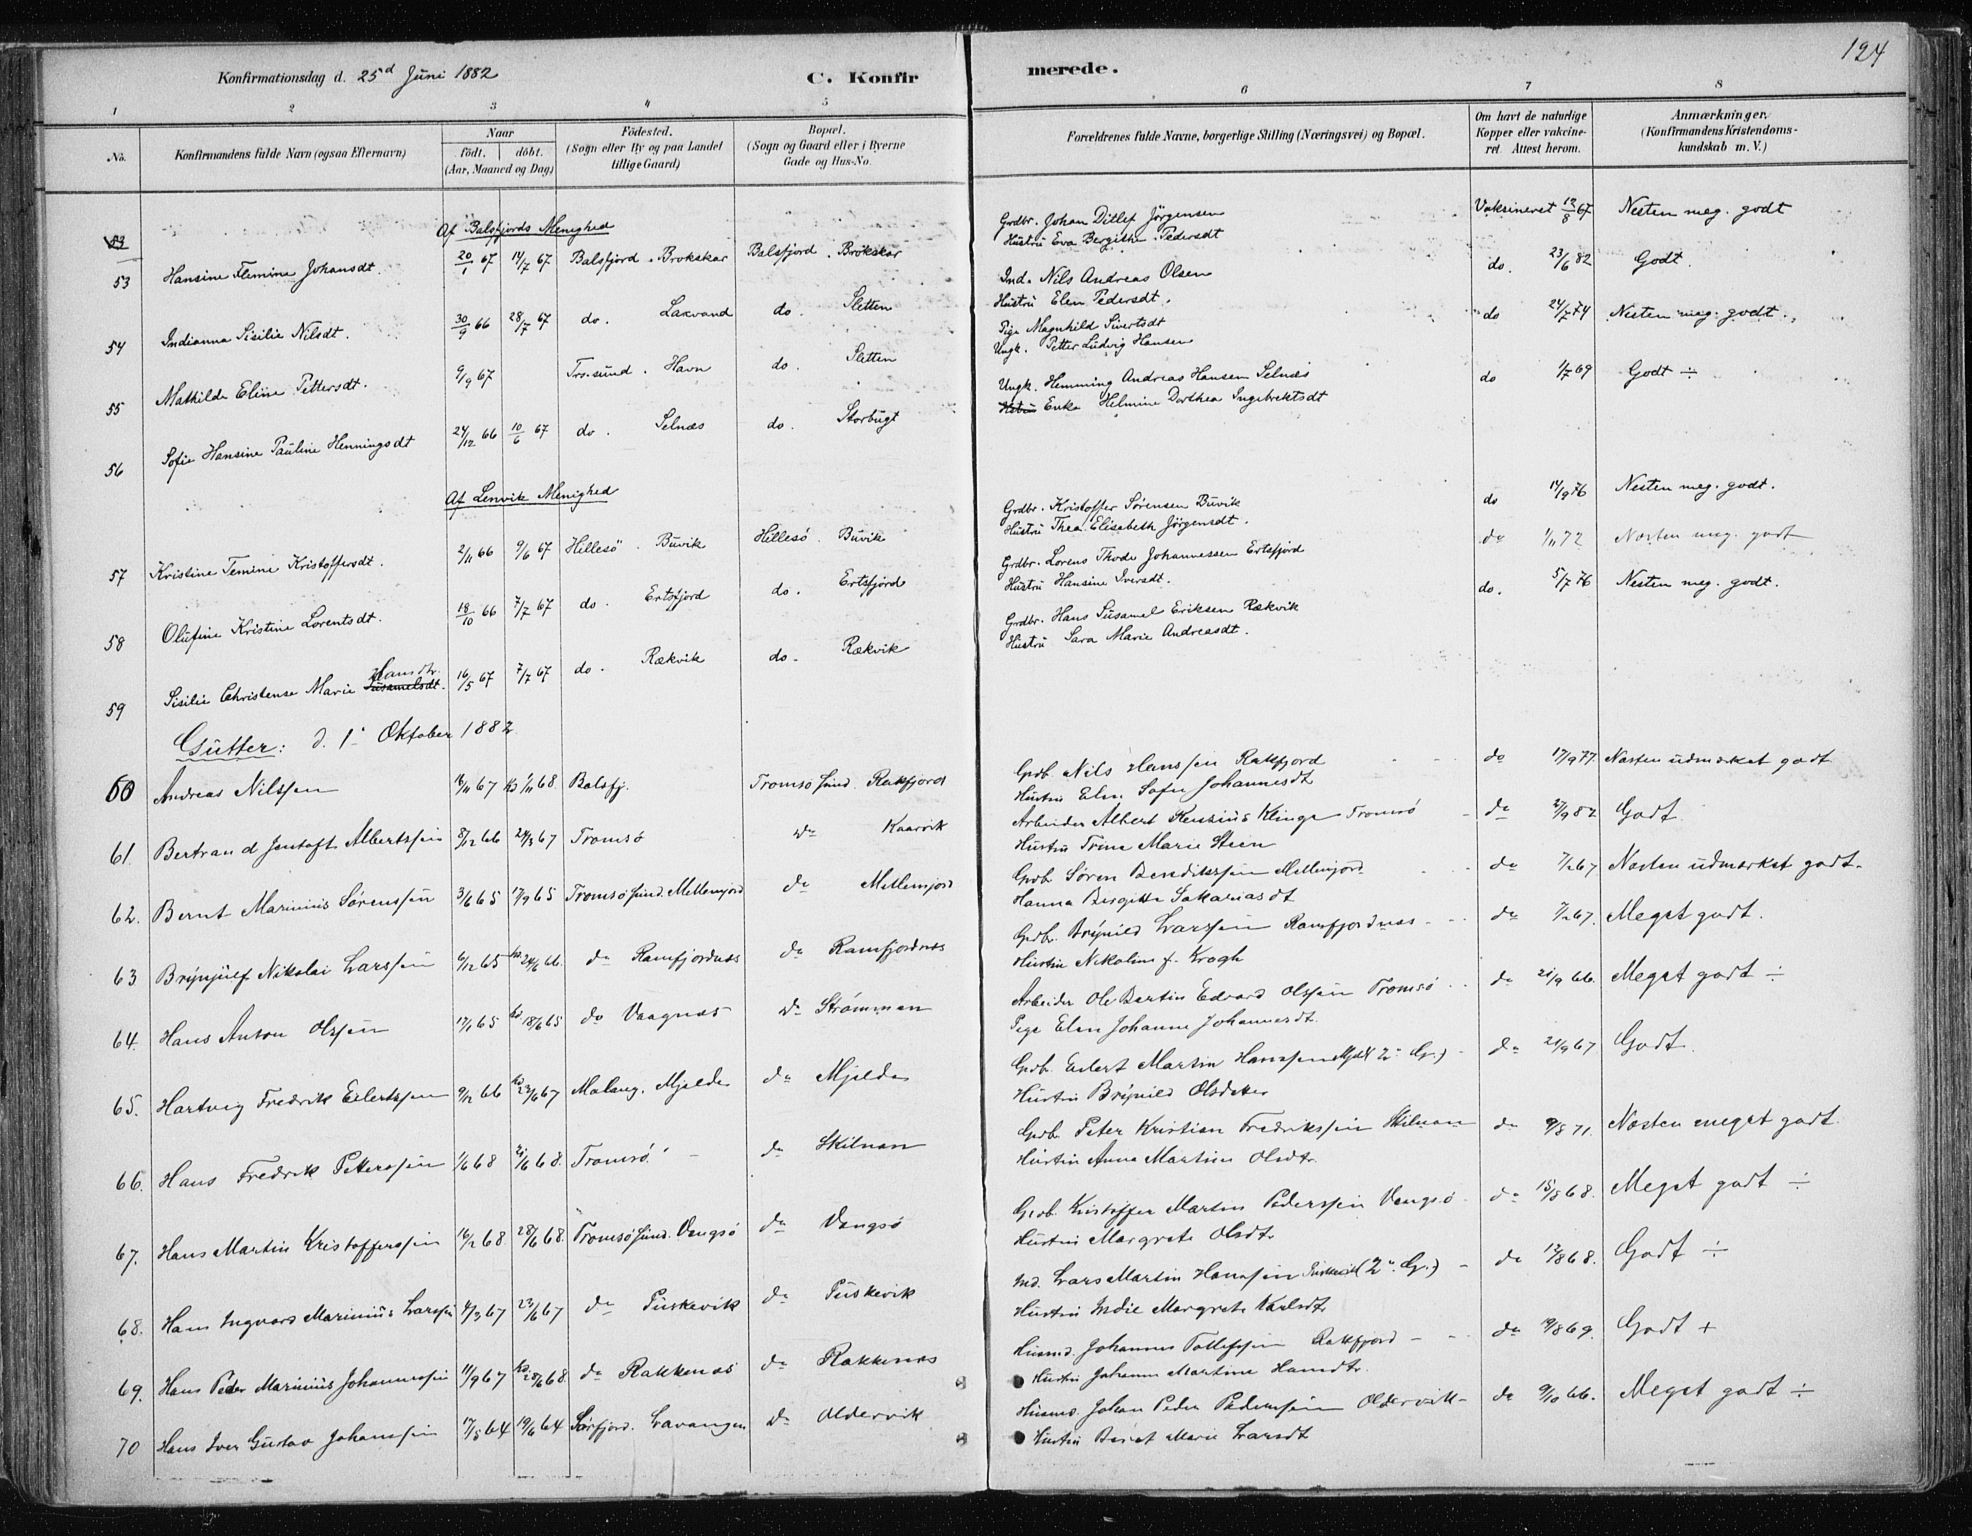 124
Konfirmationsdag d. 25d Juni 1882 C. Konfirmerede.
1 2 3 4 5 6 7 8
No. Konfirmandens fulde Navn (ogsaa Efternavn) Naar födt. döbt. (Aar, Maaned og Dag) Födested. (Sogn eller By og paa Landet tillige Gaard) Bopæl. (Sogn og Gaard eller i Byerne Gade og Hus-No. Forældrenes fulde Navne, borgerlige Stilling (Næringsvei) og Bopæl. Om havt de naturlige Kopper eller vakcineret. Attest herom. Anmærkninger. (Konfirmandens Kristendomskundskab m. V.)
Af Balsfjords Menighed
53 Hansine Flemine Johansdt. 20/1 67 14/7 67 Balsfjord. Brokskar Balsfjord. Brokskar Grdbr. Johan Ditlef Jörgensen Vaksineret 12/8 67 Nesten meg. godt
Hustru Eva Bergithe Pedersdt
54 Indianna Sisilie Nilsdt. 30/9 66 28/7 67 do. Lakvand do. Sletten Ind. Nils Andreas Olsen do. 23/6 82 Godt.
Hustru Elen Pedersdt.
55 Mathilde Eline Pettersdt. 9/9 67 Tro.sund. Havn do. Sletten Pige Magnhild Sivertsdt do 24/7 74 Nesten meg. godt.
Ungk. Petter Ludvig Hansen
56 Sofie Hansine Pauline Henningsdt 24/12 66 10/6 67 do. Selnæs do. Storbugt Ungk. Hemming Andreas Hansen Selnæs do 1/7 69 Godt ÷
Enke Helmine Dorthea Ingebrektsdt
Af Lenvik Menighed
57 Kristine Temine Kristoffersdt. 2/11 66 9/6 67 Hillesö. Buvik Hillesö. Buvik Grdbr. Kristoffer Sörensen Buvik do 14/9 76 Nesten meg. godt.
Hustru Thea Elisabeth Jörgensdt.
58 Olufine Kristine Lorentsdt. 18/10 66 7/7 67 do. Ertsfjord do. Ertsfjord Grdbr. Lorens Thode Johannessen Ertsfjord do 1/11 72 Nesten meg. godt
Hustru Hansine Iversdt.
59 Sisilie Christense Marie Susamelsdt. Hansdtr. 16/5 67 7/7 67 do. Rækvik do. Rækvik Grdbr. Hans Susamel Eriksen Rækvik do. 5/7 76 Nesten meg. godt.
Hustru Sara Marie Andreasdt.
Gutter: d. 1. Oktober 1882
60 Andreas Nilssen 16/11 67 1/11 68 Balsfj. Tromsösund. Rakfjord Grdb. Nils Hanssen Rakfjord do 17/9 77. Næsten udmærket godt
Hustru Elen Sofie Johannesdt
61. Bertrand Jentoft Albertssen 8/12 66 24/3 67 Tromsö do Kaarvik Arbeider Albert Klinge Tromsö do 27/9 82 Godt.
Hustru Trine Marie Steen
62. Bernt Marinius Sørenssen 3/6 65 17/9 65 Tromsösund. Mellemjord do Mellemjord Grdb. Søren Benditssen Mellemjord do 7/2 67 Næsten udmærket godt.
Hanna Birgitte Sakariasdt
63 Brynjulf Nikolai Larssen 6/12 65 24/6 66. do Ramfjordnæs do Ramfjordnæs Grdb. Brynild Larssen Ramfjordnæs do 7/2 67. Meget godt.
Hustru Nikoline f. Krogh
64. Hans Anton Olssen 17/1 65 18/6 65 do Vaagnæs do Strømmen Arbeider Ole Bertin Edvard Olssen Tromsö do 21/9 66. Meget godt ÷
Pige Elen Johanne Johannesdt.
65. Hartvig Fredrik Eilertssen 9/12 66 23/6 67 Malang. Mjelde do Mjelde Grdb. Eilert Martin Hanssen Mjelde (2. G.) do 21/9 67 Godt
Hustru Brynild Olsdatter
66. Hans Fredrik Petterssen 1/6 68 21/6 68. Tromsö. do Skilnan Grdb. Peter Kristian Fredrikssen Skilnan do 9/8 71. Næsten meget godt.
Hustru Anne Martine Olsdtr
67. Hans Martin Kristofferssen 16/2 68 28/6 68. Tromsösund. Vengsö do Vengsö Grdb. Kristoffer Martin Pederssen Vengsö do 15/8 68. Meget godt ÷
Hustru Margrete Olsdtr
68. Hans Ingvard Marinius Larssen 4/3 67 23/6 67 do Puskevik do Puskevik Ind. Lars Martin Hanssen Puskevik (2. G.) do 12/8 68. Godt ÷
Hustru Indie Margrete Karlsdtr
69. Hans Peder Marinius Johannessen 11/9 67 28/6 68. do Rakkenæs do Rakkenæs Husmd. Johannes Tollefssen Rakfjord do 19/8 69. Godt +
Hustru Johanne Martine Hansdtr.
70 Hans Iver Gustav Johanssen 17/5 64 19/6 64 Sörfjord. Lavangen do Oldervik Husmd. Johan Peder Pederssen Oldervik do 9/10 66. Meget godt ÷
Hustru Berit Marie Larsdt